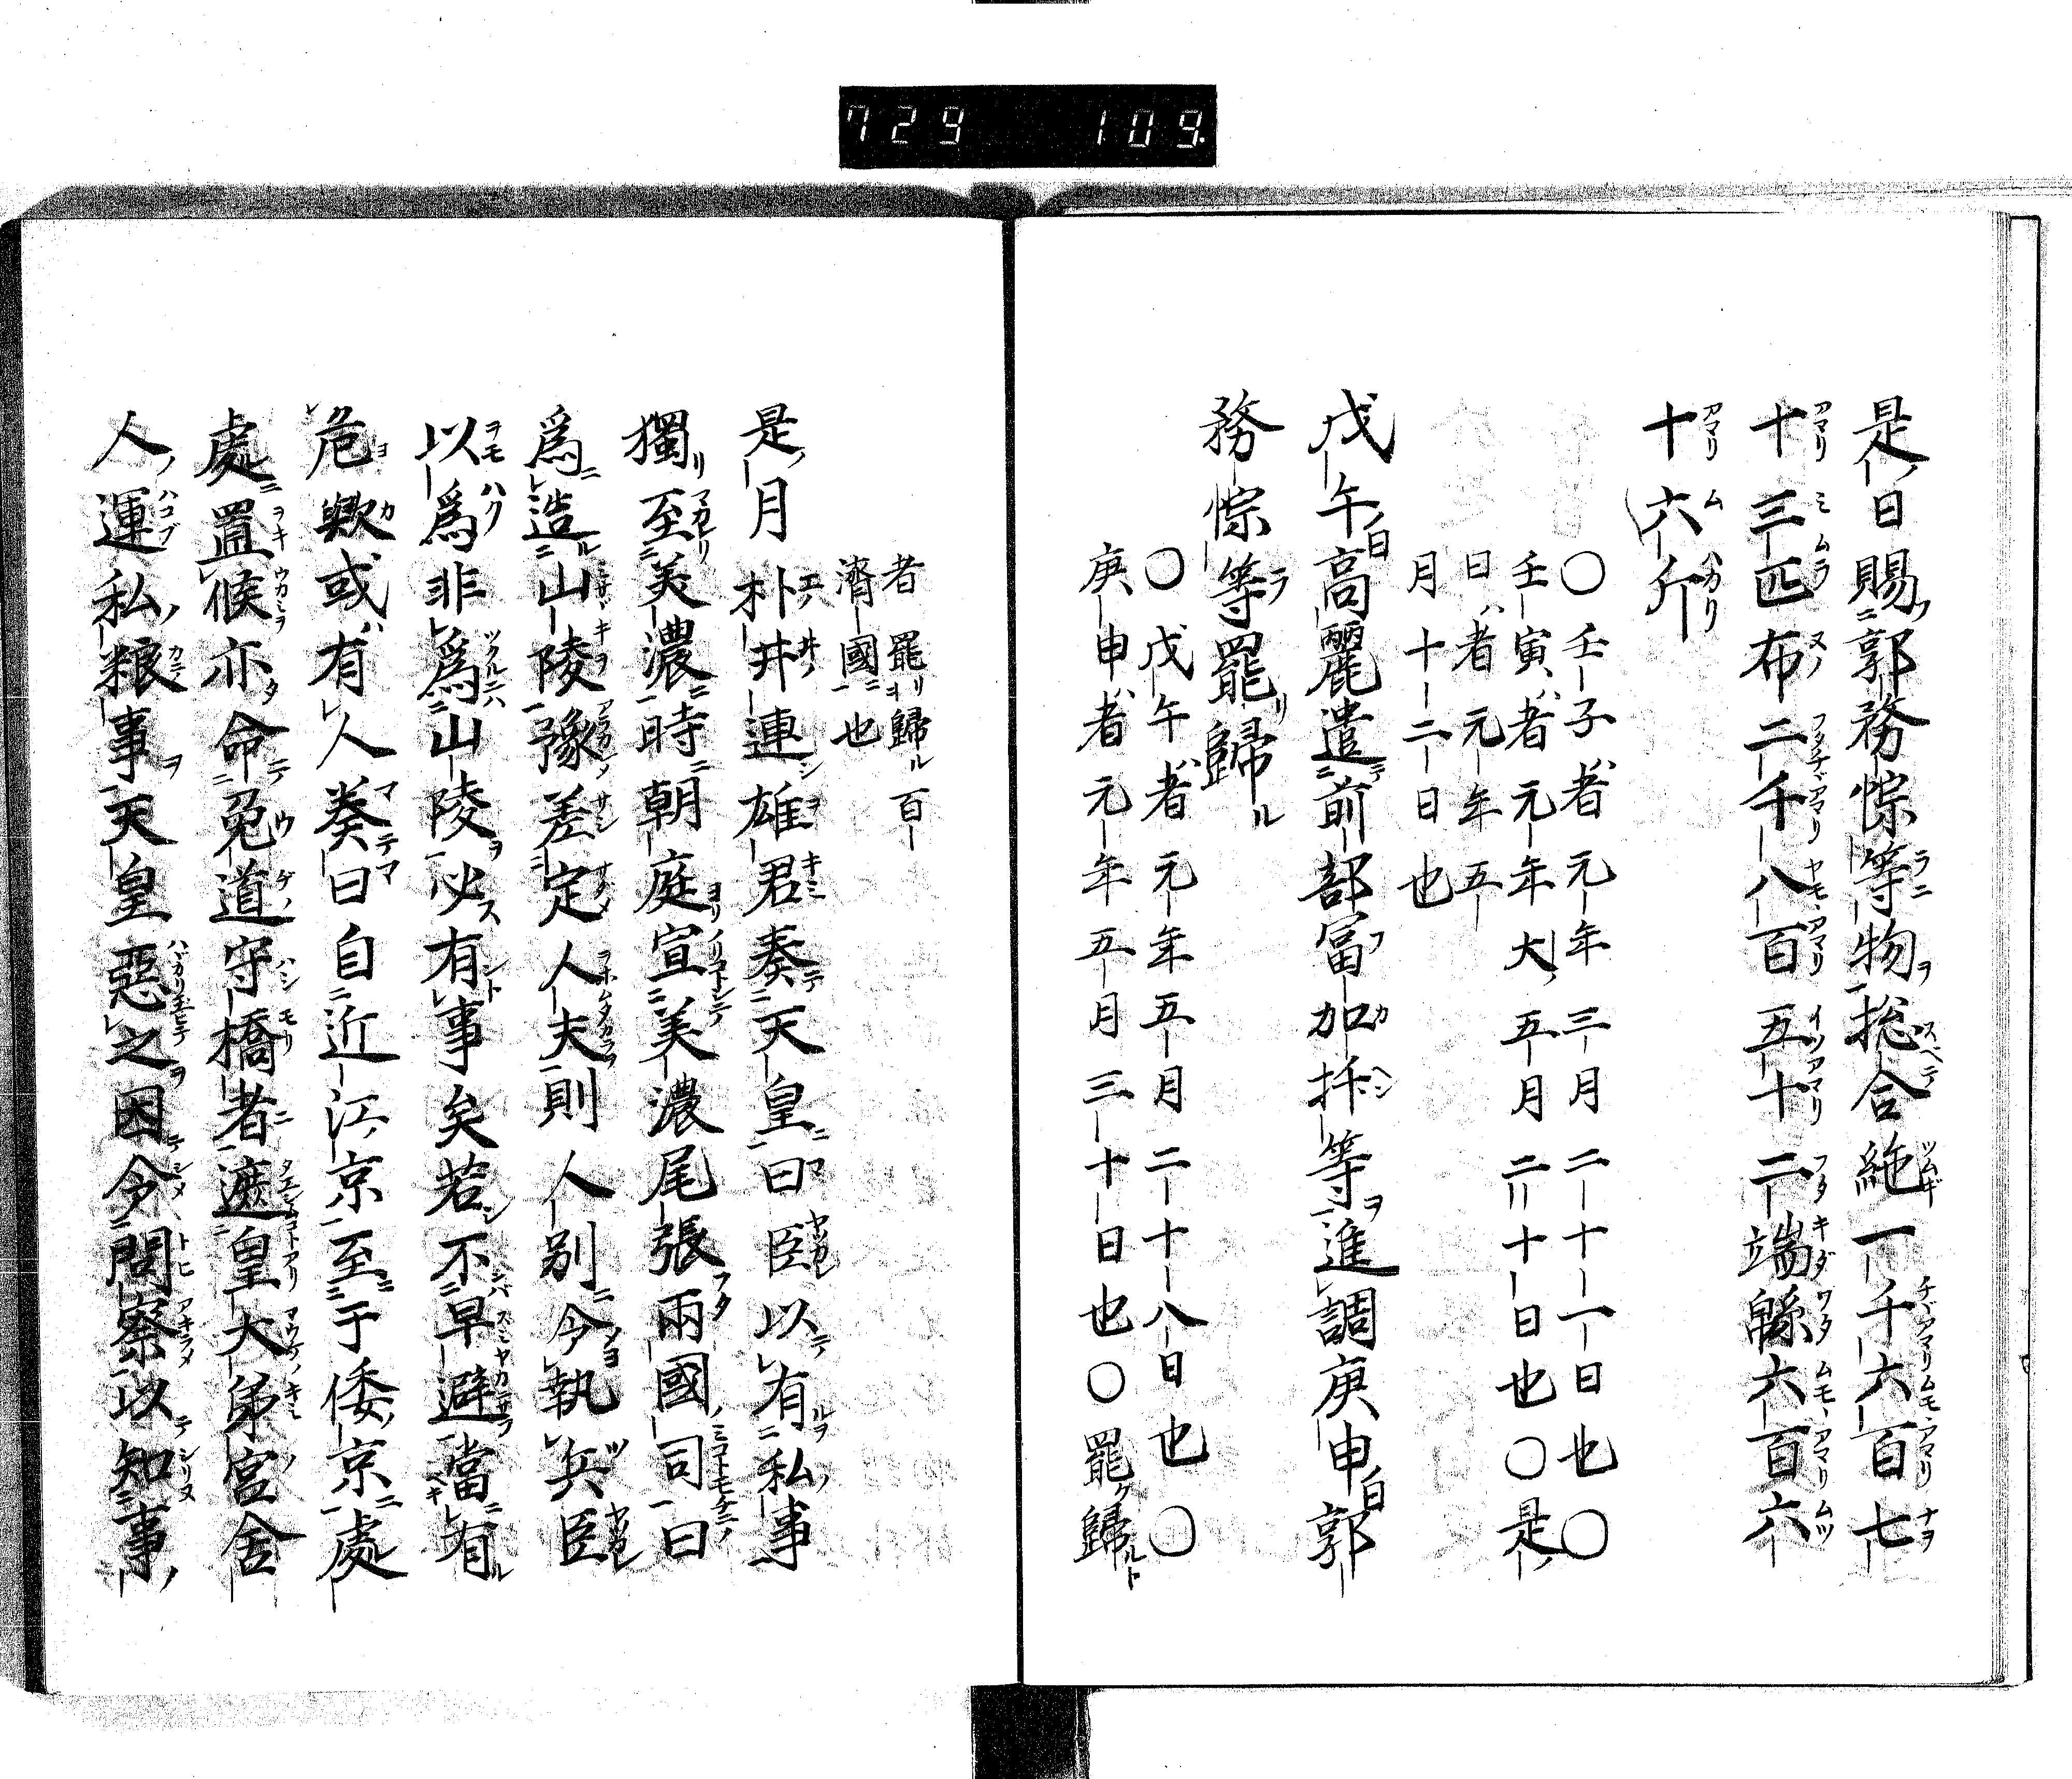 729 109
是日賜郭務悰等物捴合絁一千六百七
十三匹布二千八百五十二端緜六百六
十六斤
○壬子者元年三月二十一日也○
壬寅者元年大五月二十日也○是
日者元年五
月十二日也
戊午高麗遣前部富加抃等進調庚申郭
務悰等罷歸
○戊午者元年五月二十八日也○
庚申者元年五月三十日也○罷歸
者罷歸百
濟國也
是月朴井連雄君奏天皇曰臣以有私事
獨至美濃時朝庭宣美濃尾張兩國司曰
爲造山陵豫差定人夫則人別令執兵臣
以爲非爲山陵必有事矣若不早避當有
危歟或有人奏曰自近江京至于倭京處
處置候亦命菟道守橋者遮皇大弟宮舍
人運私粮事天皇惡之因令問察以知事